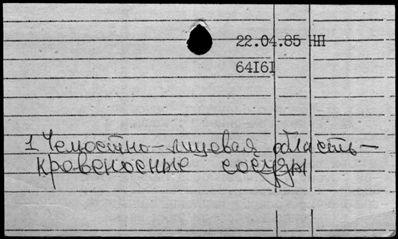 22.04.85 НП
64I6I
1 Челюстно-лицевая область-
кровеносные сосуды